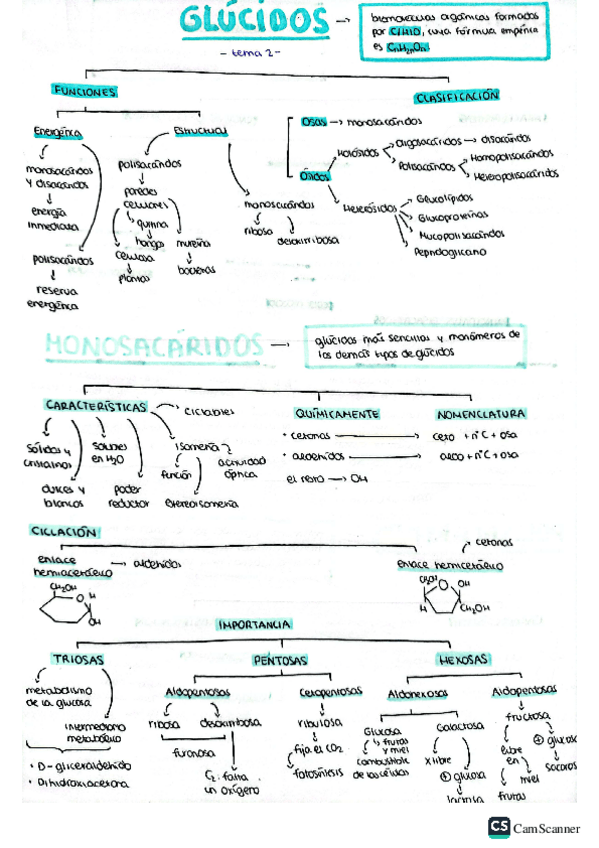 GLÚCIDOS
- tema 2 -
biomoléculas orgánicas formadas
por C, H, O, cuya fórmula empírica
es CnH2nOn
FUNCIONES
CLASIFICACIÓN
Energética
Estructural
Osas → monosacáridos
Ósidos
Holósidos
Oligosacáridos → disacáridos
Polisacáridos
Homopolisacáridos
Heteropolisacáridos
Heterósidos
Glucolípidos
Glucoproteínas
Mucopolisacáridos
Peptidoglicano
monosacáridos
y disacáridos
energía
inmediata
polisacáridos
reserva
energética
polisacáridos
paredes
celulares
quitina
hongos
celulosa
plantas
mureína
bacterias
monosacáridos
ribosa
desoxirribosa
MONOSACÁRIDOS
glúcidos más sencillos y monómeros de
los demás tipos de glúcidos
CARACTERÍSTICAS
QUÍMICAMENTE
NOMENCLATURA
sólidos y
cristalinos
dulces y
blancos
solubles
en H2O
poder
reductor
isomería
función
estereoisomería
actividad
óptica
ciclables
· cetonas → ceto + nºC + osa
· aldehídos → aldo + nºC + osa
el resto → OH
CICLACIÓN
enlace
hemiacetálico
→ aldehídos
enlace hemicetálico
cetonas
CH2OH
O
H
OH
CH2OH
O
OH
H
CH2OH
IMPORTANCIA
TRIOSAS
PENTOSAS
HEXOSAS
metabolismo
de la glucosa
intermediario
metabólico
· D-gliceraldehído
· Dihidroxiacetona
Aldopentosas
ribosa
desoxirribosa
furanosa
C2 falta
un oxígeno
Cetopentosas
ribulosa
fija el CO2
fotosíntesis
Aldohexosas
Glucosa
frutas
y miel
combustible
de las células
Galactosa
X libre
⊕ glucosa
lactosa
Aldopentosas
fructosa
libre
en
miel
frutas
⊕ glucosa
CS CamScanner